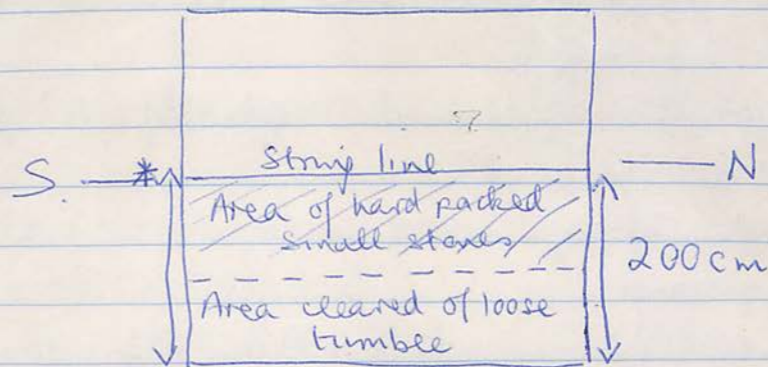 String line
S. — * — N
Area of hard packed
small stones
200 cm
Area cleared of loose
tumble